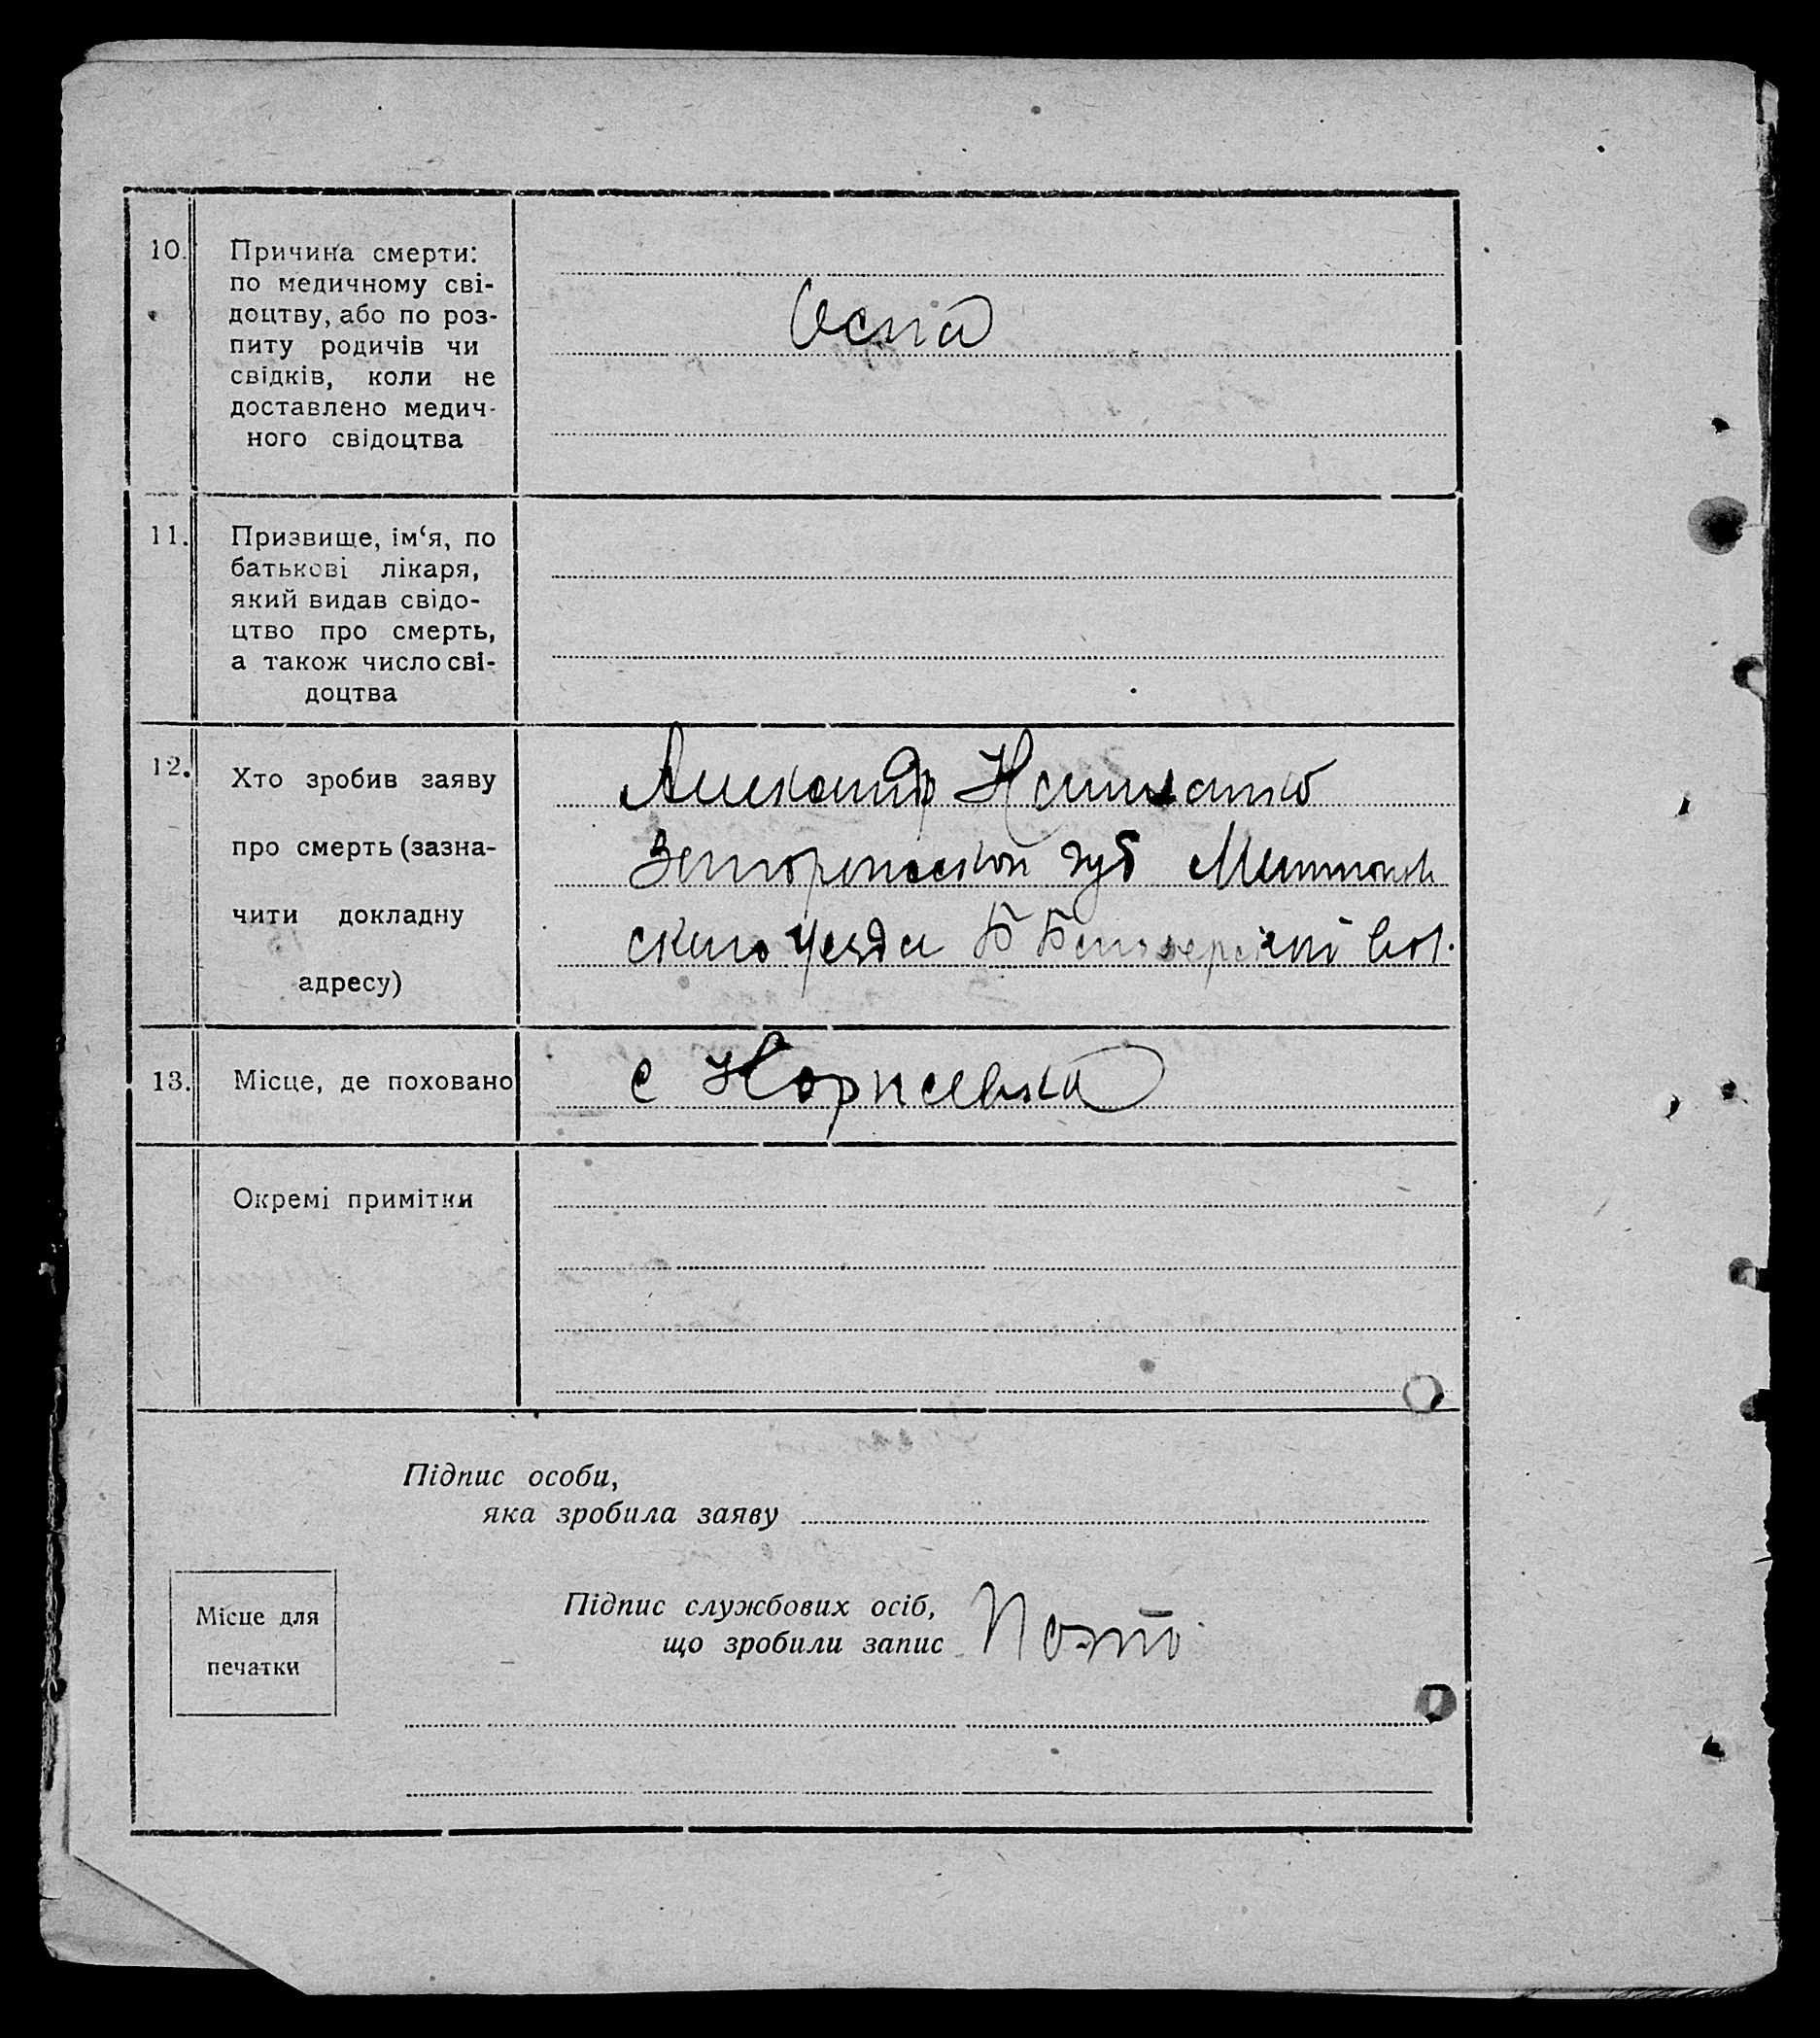 10. Причина смерти:
по медичному сві-
доцтву, або по роз-
питу родичів чи
свідків, коли не
доставлено медич-
ного свідоцтва
Оспа
11. Призвище, ім‘я, по
батькові лікаря,
який видав свідо-
цтво про смерть,
а також число сві-
доцтва
12. Хто зробив заяву
про смерть (зазна-
чити докладну
адресу)
Александр
губ
ского уезда Б Белозерской вол.
13. Місце, де поховано
с
Окремі примітки
Підпис особи,
яка зробила заяву
Місце для
печатки
Підпис службових осіб,
що зробили запис